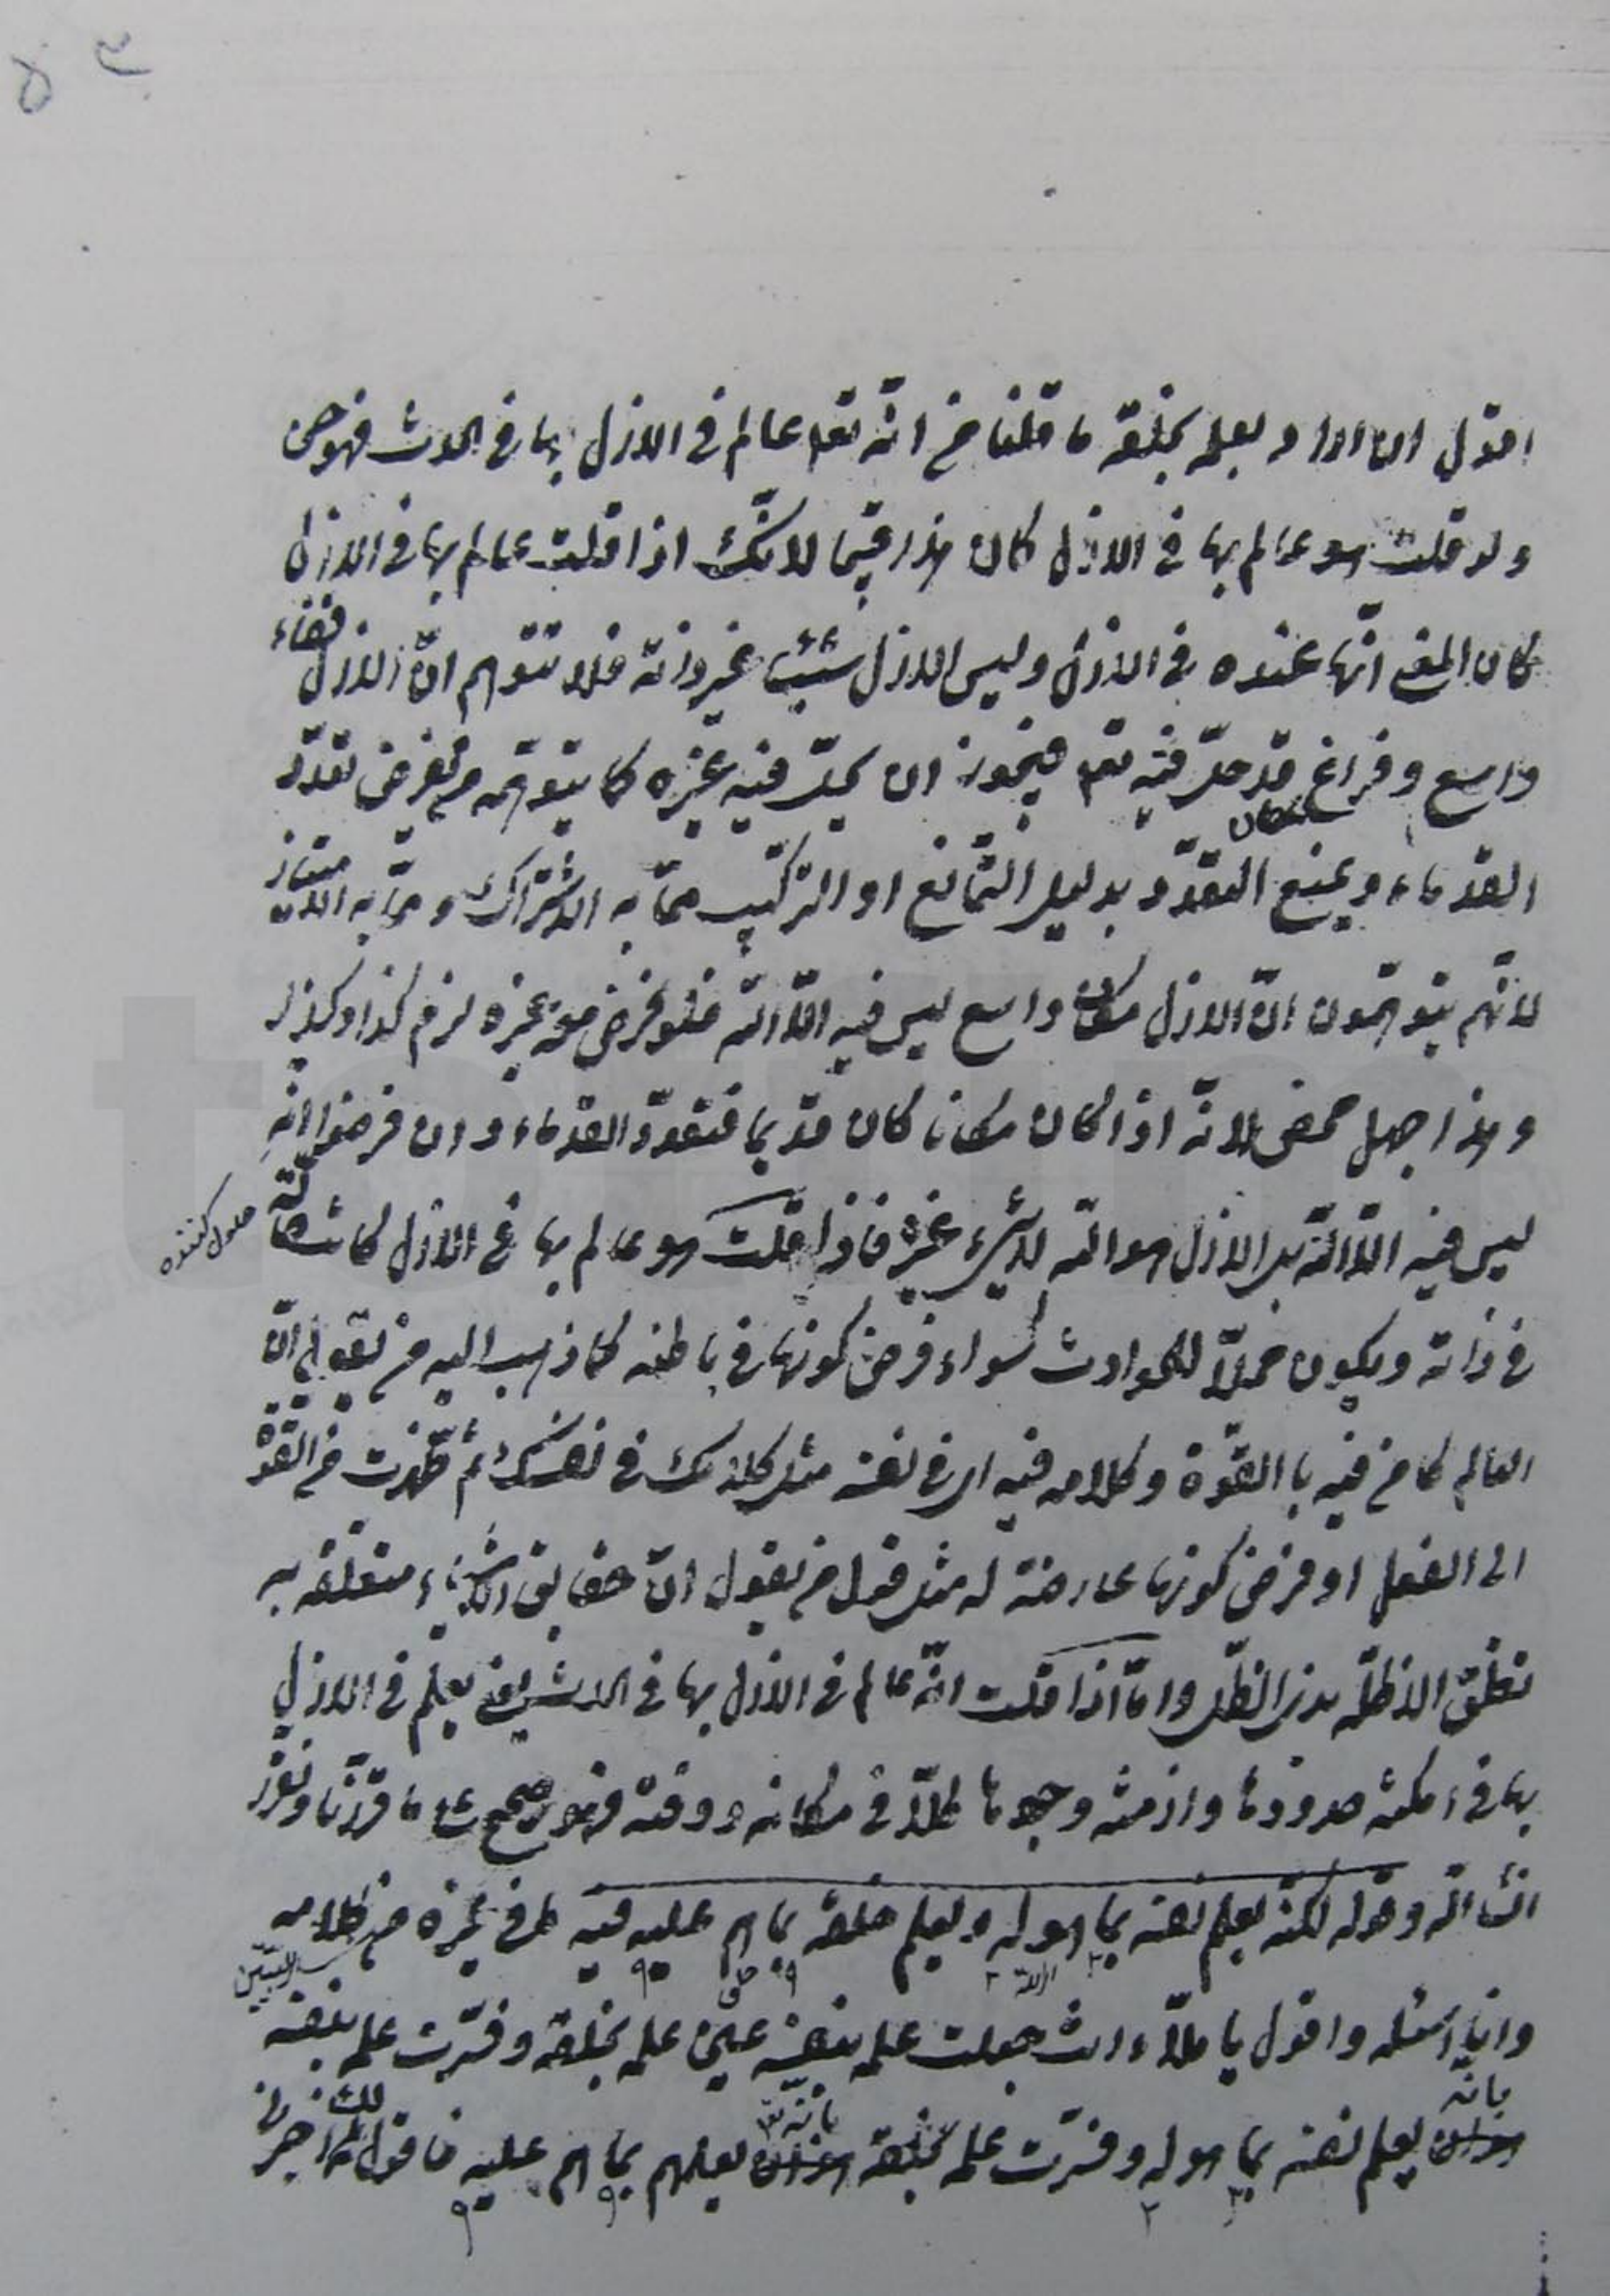 اقول ان اراد بعلمه بخلقه ما قلنا من انّه تعالى عالم في الازل بها في الحدث فهو حق
ولو قلت هو عالم بها في الازل كان هذا قبيحا لانّك اذا قلت عالم بها في الازل
كان المعنى انّها عنده في الازل وليس الازل شيئا غير ذاته فلا تتوهم انّ الازل فضاء
واسع وفراغ قد حلّ فيه تعالى فيجوز ان يحلّ فيه غيره كما يتوهّمه من يفرض تعدّد
القدماء ويمنع التعدّد بدليل التمانع او التركيب ممّا به الاشتراك وممّا به الامتياز
لانّهم يتوهّمون انّ الازل مكان واسع ليس فيه الّا الله فلو فرض معه غيره لزم كذا وكذا
وهذا جهل محض لانّه اذا كان مكانا كان قديما فتعدّد القدماء وان فرضوا انّه
ليس فيه الّا الله بل الازل هو الله لا شيء غيره فاذا قلت هو عالم بها في الازل كانت حالّة
حلول كننده
في ذاته ويكون محلّا للحوادث سواء فرض كونها في باطنه كما ذهب اليه من يقول انّ
العالم كامن فيه بالقوّة وكلامه فيه اى في نفسه مثل كلامك في نفسك ثم ظهرت من القوّة
الى الفعل او فرض كونها عارضة له مثل قول من يقول انّ حقايق الاشياء متعلقة به
تعلّق الاظلّه بذى الظلّ وامّا اذا قلت انّه عالم في الازل بها في الحدث يعنى يعلم في الازل
بها في امكنة حدودها وازمنة وجودها كلّا في مكانه ووقته فهو صحيح على ما قرّرنا ونقرّر
انشاء الله وقوله لكنه يعلم نفسه بما هو له ويعلم خلقه بما هم عليه فيه ما في غيره من كلامه
وانا اسئله واقول يا ملّا انت جعلت علمه بنفسه عين علمه بخلقه وفسّرت علمه بنفسه
بانه يعلم نفسه بما هو له وفسّرت علمه بخلقه بانّه يعلمهم بما هم عليه فاقول لك اخبرنى